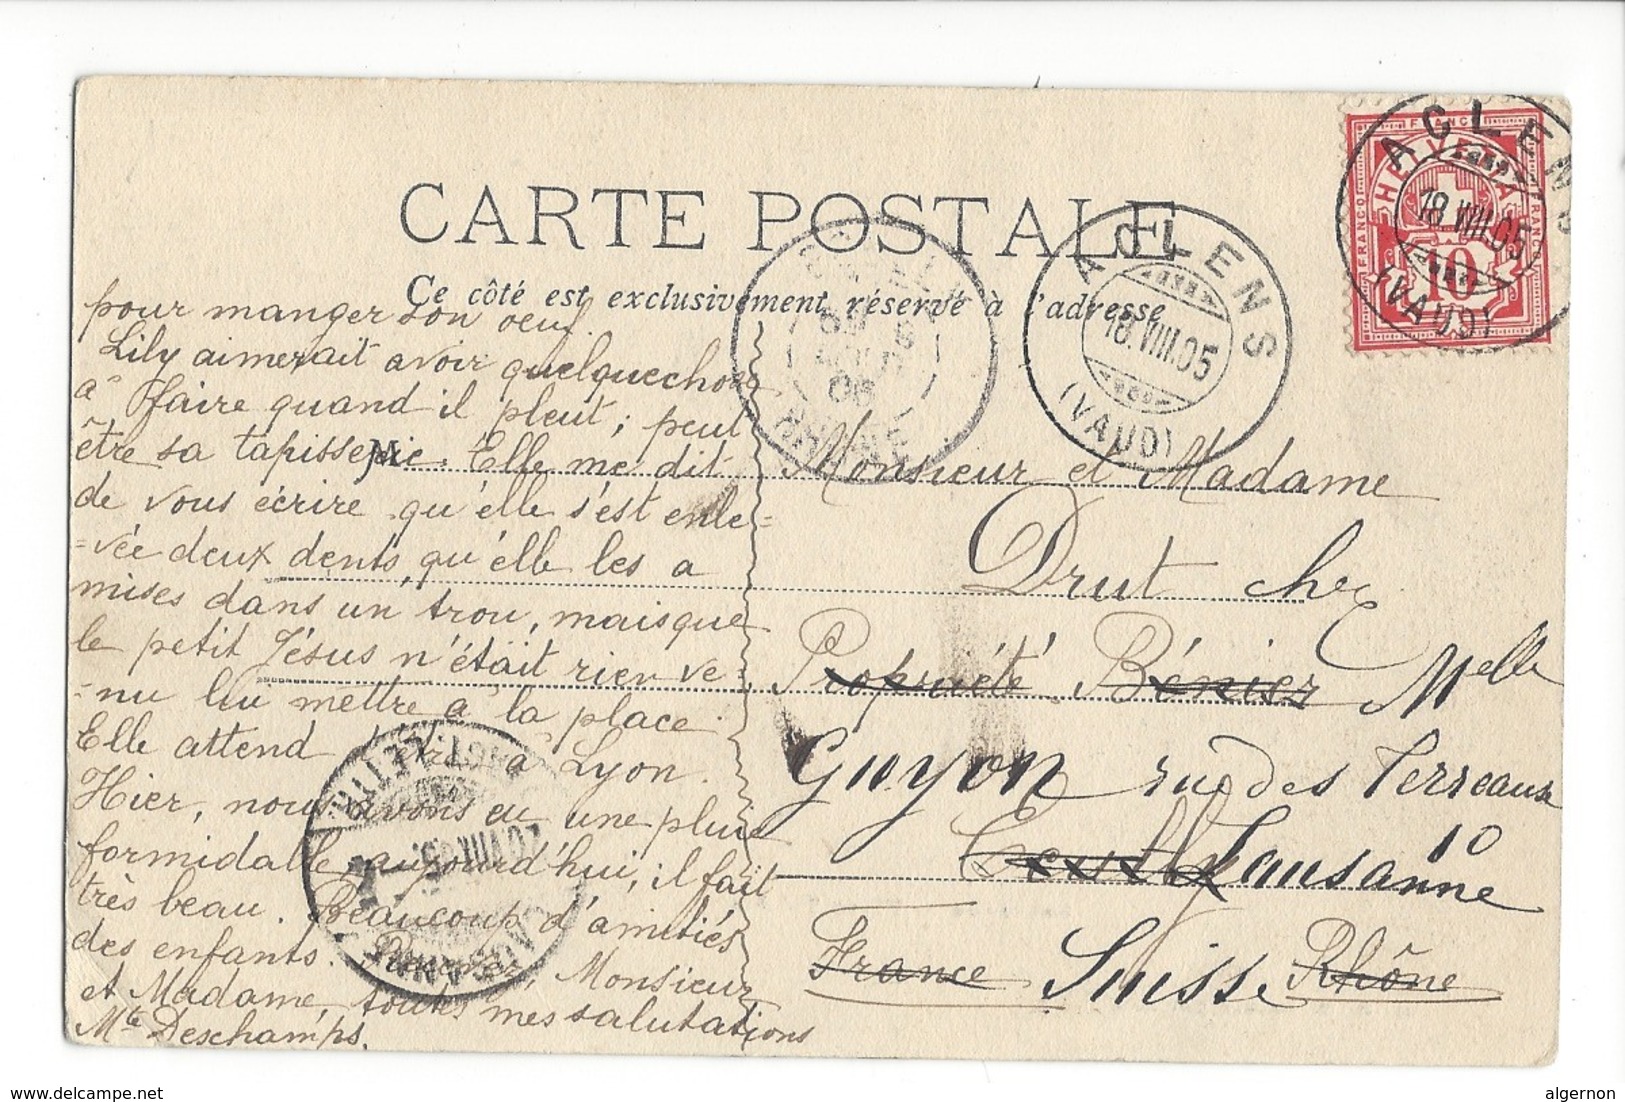 CARTE POSTALE
Ce côté est exclusivement réservé à l'adresse
HELVETIA
FRANCO
10
ACLENS
18.VIII.05
(VAUD)
ACLENS
18.VIII.05
(VAUD)
pour manger son oeuf.
Lily aimerait avoir quelquechose
à faire quand il pleut; peut
être sa tapisserie. Elle me dit
de vous écrire qu'élle s'est enle=
=vée deux dents, qu'élle les a
mises dans un trou, maisque
le petit Jésus n'était rien ve=
=nu lui mettre à la place.
Elle attend d'être à Lyon.
Hier, nous avons eu une pluie
formidable, aujourd'hui, il fait
très beau. Beaucoup d'amitiés
des enfants. Recevez, Monsieur
et Madame, toutes mes salutations
Mte Deschamps.
M
Monsieur et Madame
Drut chez
Propriété Bénier Melle
Guyon rue des Terreaux
10
Lausanne
France Suisse Rhône
algernon
delcampe.net